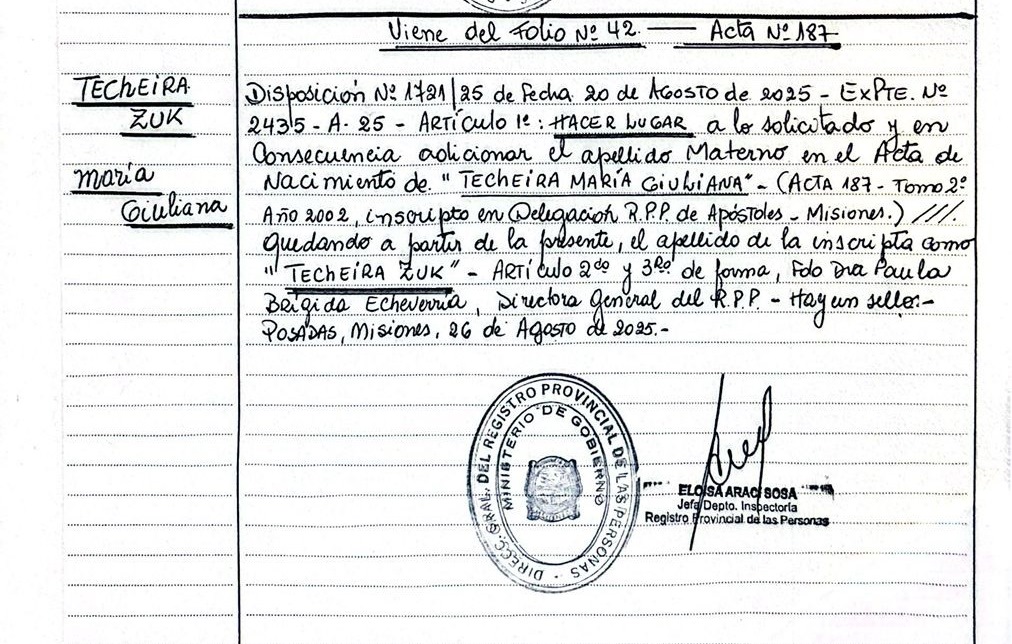 Viene del Folio Nº 42. — Acta Nº 187
TECHEIRA
ZUK
María
Giuliana
Disposición Nº 1721/25 de Fecha 20 de Agosto de 2025 - EXPTE. Nº
2435 - A - 25 - ARTÍCULO 1º: HACER LUGAR a lo solicitado y en
Consecuencia adicionar el apellido Materno en el Acta de
Nacimiento de "TECHEIRA MARÍA GIULIANA" - (ACTA 187 - Tomo 2º
Año 2002, inscripto en Delegación R.P.P. de Apóstoles - Misiones.) ///.
quedando a partir de la presente, el apellido de la inscripta como
"TECHEIRA ZUK" - ARTÍculo 2do y 3Ro de forma, Fdo Dra Paula
Brigida Echeverria, Directora General del R.P.P. - Hay un sello.-
POSADAS, Misiones, 26 de Agosto de 2025.-
DIRECC. GRAL. DEL REGISTRO PROVINCIAL DE LAS PERSONAS
MINISTERIO DE GOBIERNO
ELOISA ARACI SOSA
Jefa Depto. Inspectoría
Registro Provincial de las Personas